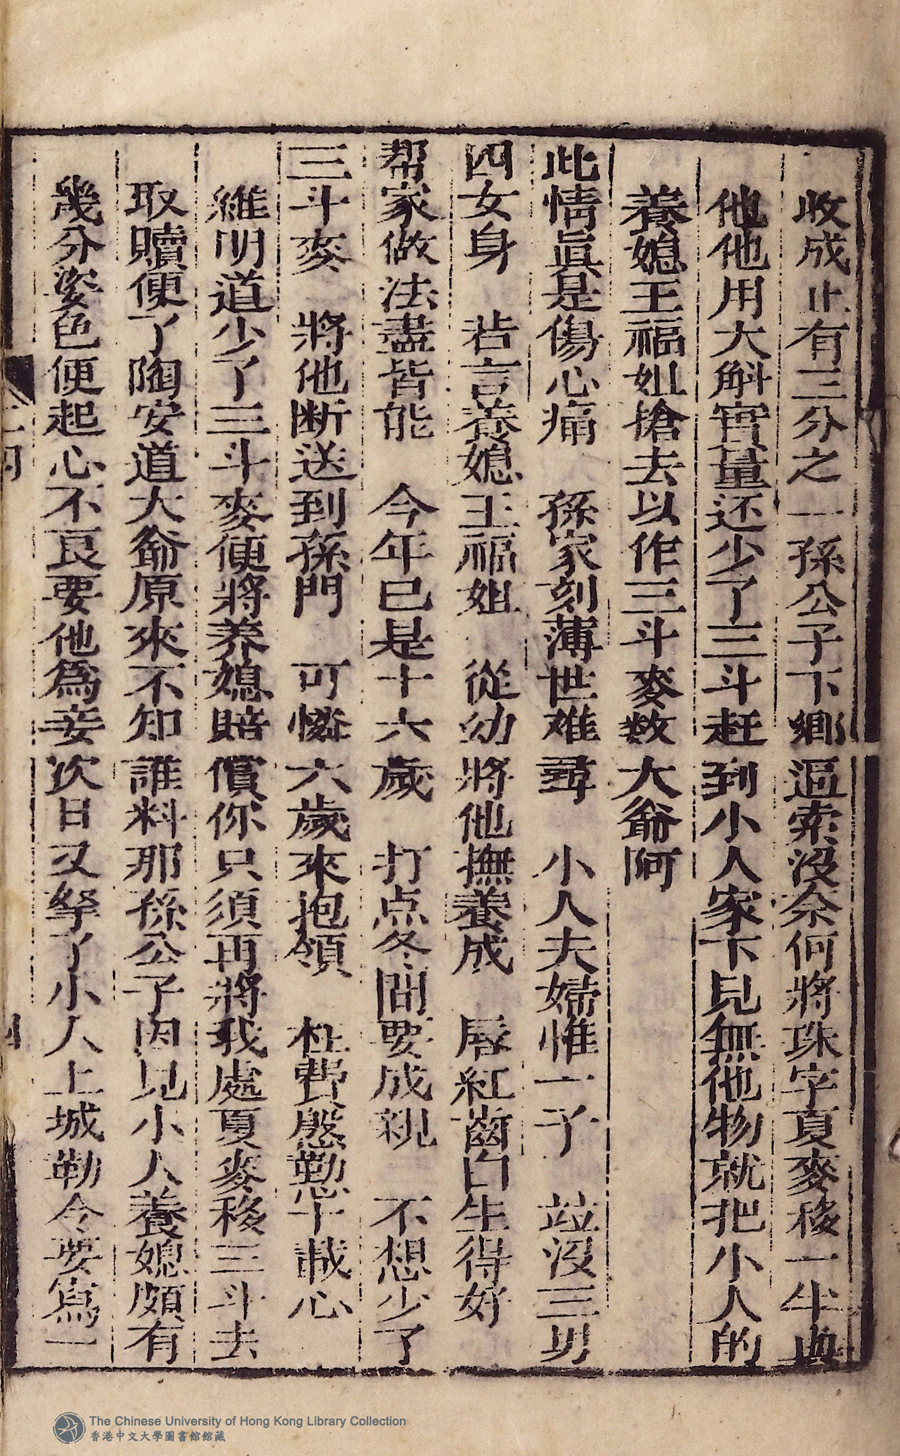 收成止有三分之一孫公子下鄉逼索沒奈何將珠字夏麥移一半與
他他用大斛實量还少了三斗赶到小人家下見無他物就把小人的
養媳王福姐搶去以作三斗麥数大爺阿
此情眞是傷心痛　孫家刻薄世难尋　小人夫婦惟一子　竝沒三男
四女身　若言養媳王福姐　從幼將他撫養成　唇紅齒白生得好
帮家做法盡皆能　今年已是十六歲　打点冬間要成親　不想少了
三斗麥　將他断送到孫門　可憐六歲來抱領　枉費慇懃十載心
維明道少了三斗麥便將养媳賠償你只須再將我處夏麥移三斗去
取贖便了陶安道大爺原來不知誰料那孫公子因見小人養媳頗有
幾分姿色便起心不良要他爲妾次日又拏了小人上城勒令要寫一
二
四
The Chinese University of Hong Kong Library Collection
香港中文大學圖書館館藏